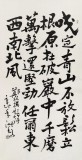 咬定青山不放鬆立
根原在破巖中千磨
萬擊還堅勁任爾東
西南北風